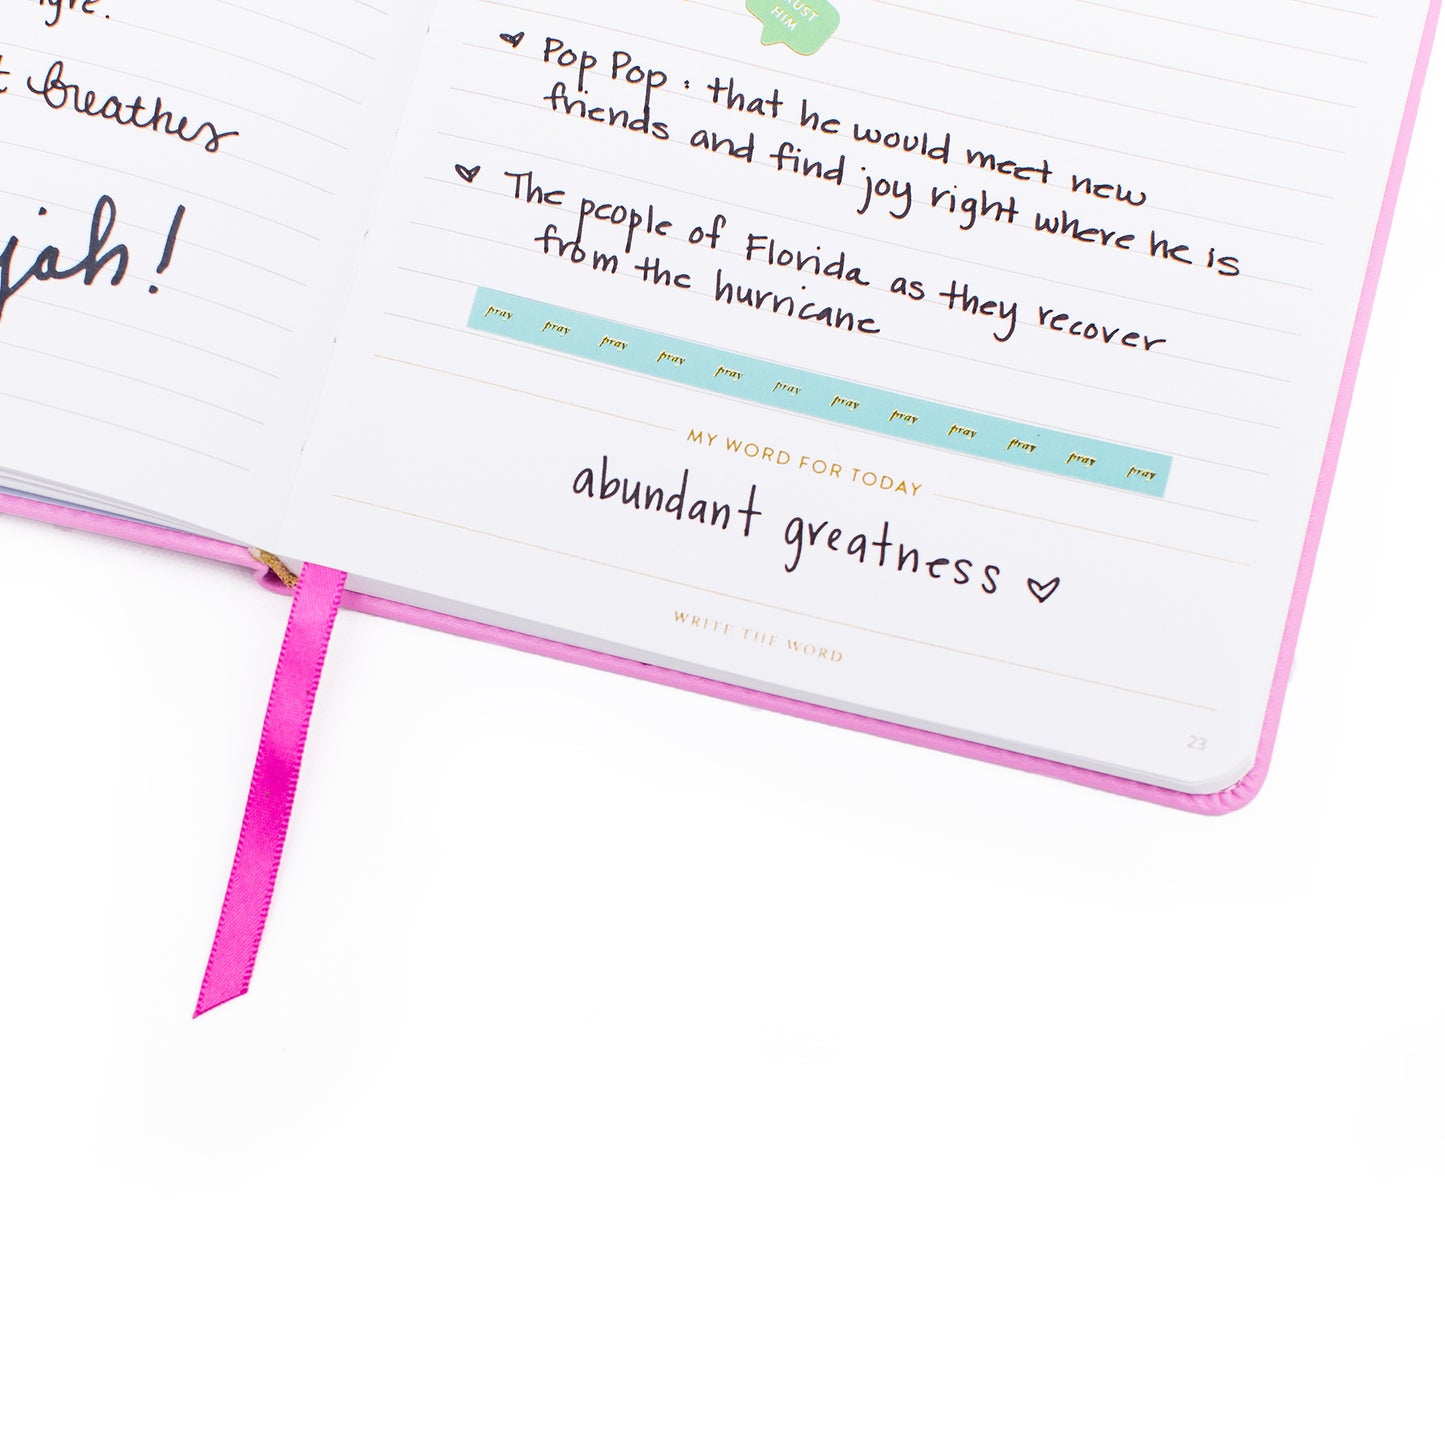 breathes
TRUST
HIM
Pop Pop : that he would meet new
friends and find joy right where he is
The people of Florida as they recover
from the hurricane
pray pray pray pray pray pray pray pray pray pray pray pray
MY WORD FOR TODAY
abundant greatness
WRITE THE WORD
23